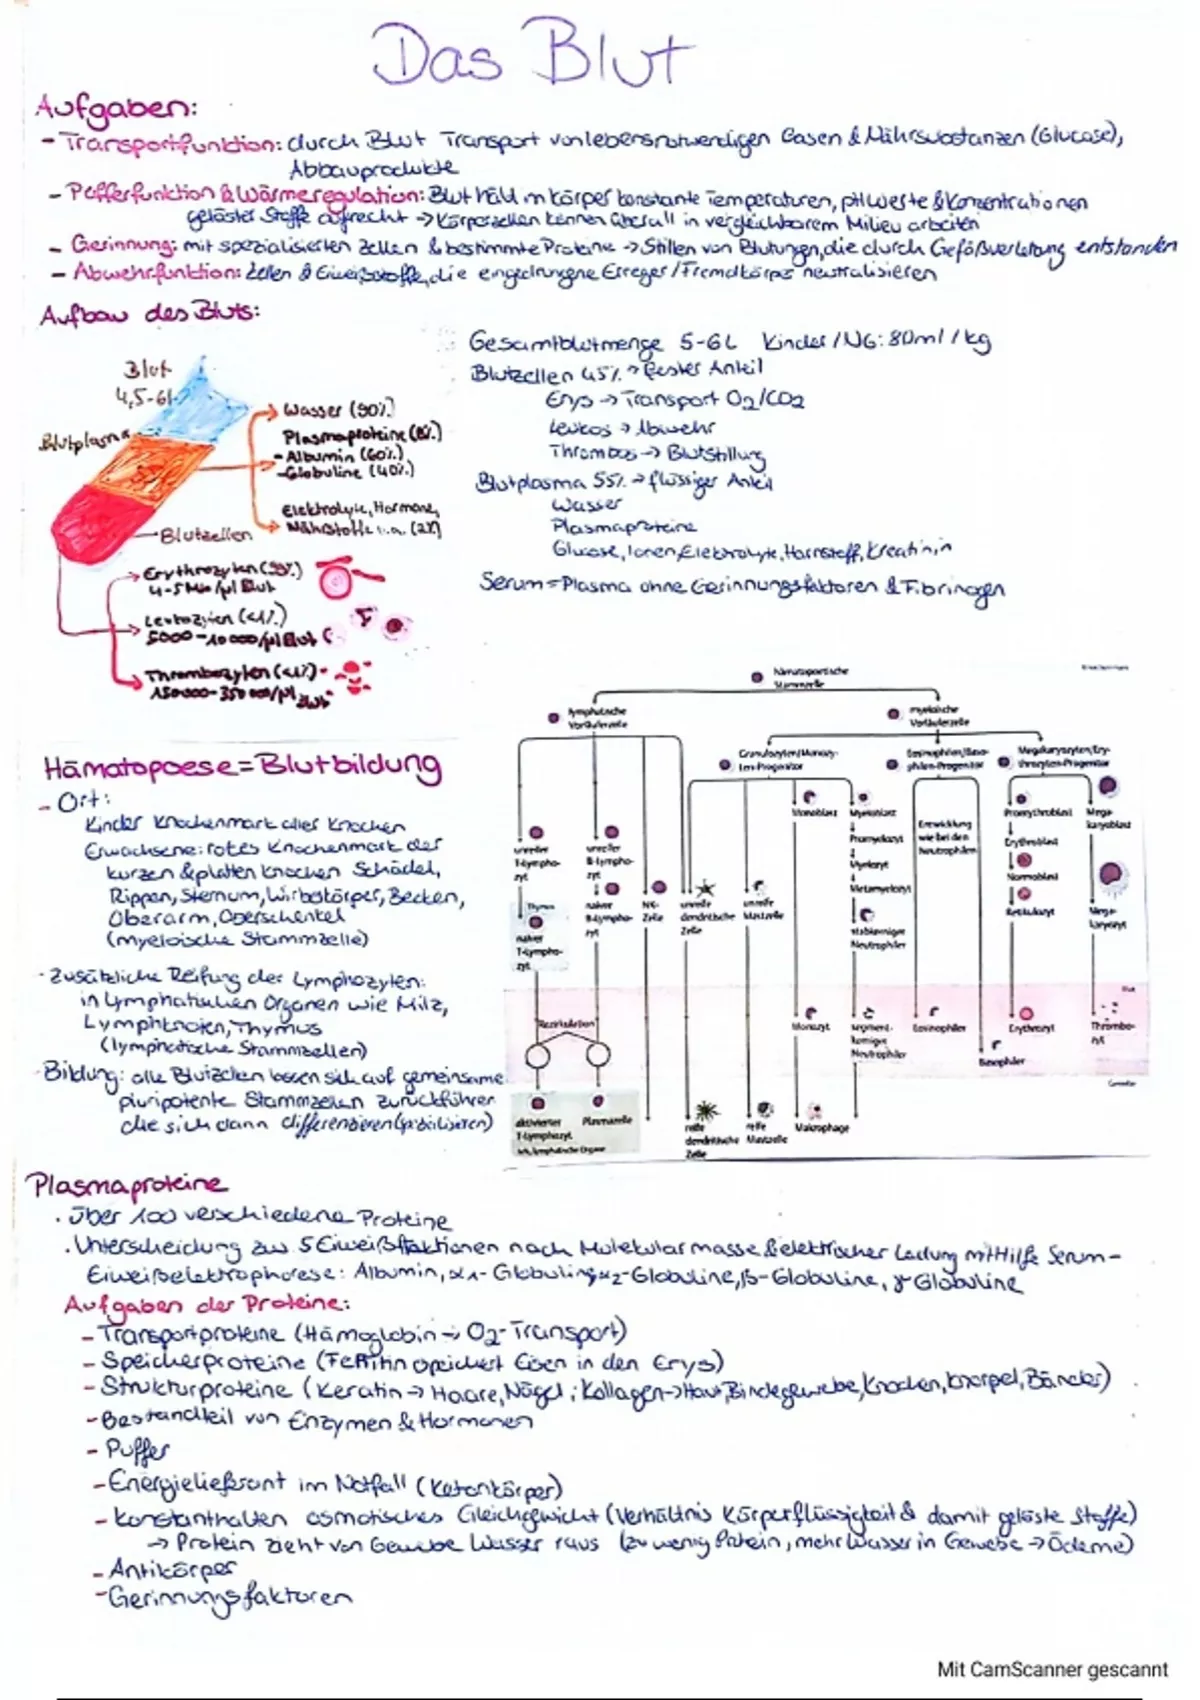 Das Blut
Aufgaben:
- Transportfunktion: durch Blut Transport von lebensnotwendigen Gasen & Nährsubstanzen (Glucose),
Abbauprodukte
- Pufferfunktion & Wärmeregulation: Blut hält im Körper konstante Temperaturen, pH Werte & Konzentrationen
gelöster Stoffe aufrecht → Körperzellen können überall in vergleichbarem Milieu arbeiten
- Gerinnung: mit spezialisierten Zellen & bestimmte Proteine → Stillen von Blutungen, die durch Gefäßverletzung entstanden
- Abwehrfunktion: Zellen & Eiweißstoffe, die eingedrungene Erreger/Fremdkörper neutralisieren
Aufbau des Bluts:
Blut
4,5-6l
Blutplasma
Wasser (90%)
Plasmaproteine (8%)
- Albumin (60%)
- Globuline (40%)
Elektrolyte, Hormone,
Nährstoffe u.a. (2%)
Blutzellen
Erythrozyten (99%)
4-5 Mio/µl Blut
Leukozyten (<1%)
5000-10000/µl Blut
Thrombozyten (<1%)
150000-350000/µl Blut
Gesamtblutmenge 5-6L Kinder/NG: 80ml/kg
Blutzellen 45% → fester Anteil
Erys → Transport O2/CO2
Leukos → Abwehr
Thrombos → Blutstillung
Blutplasma 55% → flüssiger Anteil
Wasser
Plasmaproteine
Glucose, Ionen, Elektrolyte, Harnstoff, Kreatinin
Serum = Plasma ohne Gerinnungsfaktoren & Fibrinogen
hämatopoetische
Stammzelle
lymphatische
Vorläuferzelle
myeloische
Vorläuferzelle
Granulozyten/Monozy-
ten-Progenitor
Eosinophilen/Baso-
philen-Progenitor
Megakaryozyten/Ery-
throzyten-Progenitor
Monoblast
Myeloblast
Promyelozyt
Myelozyt
Metamyelozyt
stabkerniger
Neutrophiler
Entwicklung
wie bei den
Neutrophilen
Proerythroblast
Erythroblast
Normoblast
Retikulozyt
Mega-
karyoblast
Mega-
karyozyt
unreifer
T-Lympho-
zyt
unreifer
B-Lympho-
zyt
Thymus
naiver
T-Lympho-
zyt
naiver
B-Lympho-
zyt
NK-
Zelle
unreife
dendritische
Zelle
unreife
Mastzelle
Blut
Rezirkulation
Monozyt
segment-
kerniger
Neutrophiler
Eosinophiler
Basophiler
Erythrozyt
Thrombo-
zyt
Gewebe
aktivierter
T-Lymphozyt
Plasmazelle
sek. lymphatische Organe
reife
dendritische
Zelle
reife
Mastzelle
Makrophage
Hämatopoese = Blutbildung
- Ort:
Kinder Knochenmark aller Knochen
Erwachsene: rotes Knochenmark der
kurzen & platten Knochen Schädel,
Rippen, Sternum, Wirbelkörper, Becken,
Oberarm, Oberschenkel
(myeloische Stammzelle)
- Zusätzliche Reifung der Lymphozyten:
in lymphatischen Organen wie Milz,
Lymphknoten, Thymus
(lymphatische Stammzellen)
- Bildung: alle Blutzellen lassen sich auf gemeinsame
pluripotente Stammzellen zurückführen
die sich dann differenzieren (spezialisieren)
Plasmaproteine
· über 100 verschiedene Proteine
· Unterscheidung zw. 5 Eiweißfraktionen nach Molekularmasse & elektrischer Ladung mit Hilfe Serum-
Eiweißelektrophorese: Albumin, α1-Globuline, α2-Globuline, β-Globuline, γ Globuline
Aufgaben der Proteine:
- Transportproteine (Hämoglobin → O2-Transport)
- Speicherproteine (Ferritin speichert Eisen in den Erys)
- Strukturproteine (Keratin → Haare, Nägel; Kollagen → Haut, Bindegewebe, Knochen, Knorpel, Bänder)
- Bestandteil von Enzymen & Hormonen
- Puffer
- Energielieferant im Notfall (Ketonkörper)
- Konstanthalten osmotisches Gleichgewicht (Verhältnis Körperflüssigkeit & damit gelöste Stoffe)
→ Protein zieht von Gewebe Wasser raus (zu wenig Protein, mehr Wasser in Gewebe → Ödeme)
- Antikörper
- Gerinnungsfaktoren
Mit CamScanner gescannt